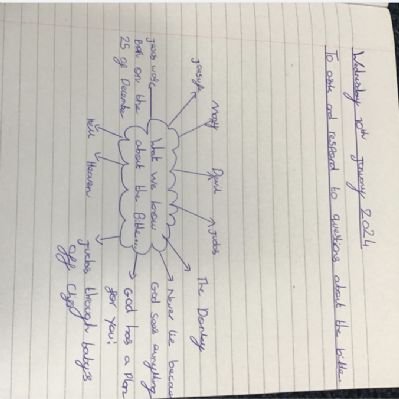 Wednesday 10th January 2024
To ask and respond to questions about the bible.
Joesyth
Mary
David
judas
The Donkey
Never lie because
God sees anything
God has a Plan
for you!
judas through baby's
off
Heaven
Hell
jesus was
Born on the
25 of December
What we know
about the Bible...